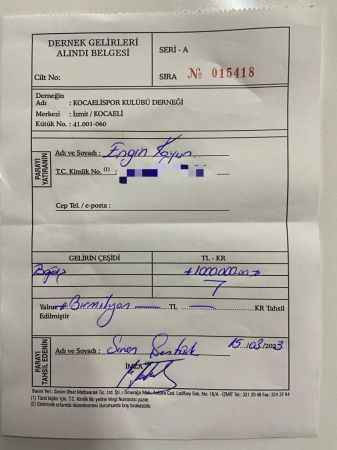 DERNEK GELİRLERİ
ALINDI BELGESİ
SERİ - A
Cilt No:
SIRA № 015418
Derneğin
Adı : KOCAELİSPOR KULÜBÜ DERNEĞİ
Merkezi : İzmit / KOCAELİ
Kütük No. : 41.001-060
PARAYI YATIRANIN
Adı ve Soyadı : Engin
T.C. Kimlik No. (1) :
Cep Tel. / e-posta :
GELİRİN ÇEŞİDİ
TL - KR
Bağış
Yalnız # Birmilyon TL KR Tahsil
Edilmiştir
PARAYI TAHSİL EDENİN
Adı ve Soyadı : Sinan
15/03/2023
İMZA
(1) Tüzel kişiler için, T.C. Kimlik No yerine Vergi Numarası yazılır.